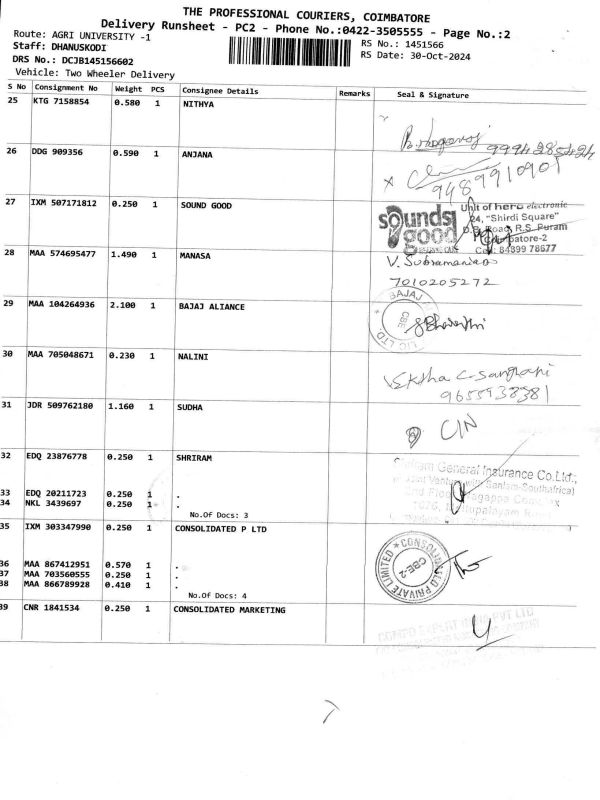 THE PROFESSIONAL COURIERS, COIMBATORE
Delivery Runsheet - PC2 - Phone No.:0422-3505555 - Page No.:2
Route: AGRI UNIVERSITY -1
RS No.: 1451566
Staff: DHANUSKODI
RS Date: 30-Oct-2024
DRS No.: DCJB145156602
Vehicle: Two Wheeler Delivery
S No Consignment No Weight PCS Consignee Details Remarks Seal & Signature
25 KTG 7158854 0.580 1 NITHYA
9994285424
26 DDG 909356 0.590 1 ANJANA
9489910901
27 IXM 507171812 0.250 1 SOUND GOOD
sounds good
Unit of hero electronic
24, "Shirdi Square"
Road, R.S. Puram
84899 78677
28 MAA 574695477 1.490 1 MANASA
V. Subramanian
7010205272
29 MAA 104264936 2.100 1 BAJAJ ALIANCE
BAJAJ
CBE
LIC LTD.
30 MAA 705048671 0.230 1 NALINI
C. Sanghani
9655938381
31 JDR 509762180 1.160 1 SUDHA
C/N
32 EDQ 23876778 0.250 1 SHRIRAM
General Insurance Co.Ltd.,
with Sanlam-Southafrica)
33 EDQ 20211723 0.250 1 .
34 NKL 3439697 0.250 1 .
No.Of Docs: 3
35 IXM 303347990 0.250 1 CONSOLIDATED P LTD
CONSOLIDATED PRIVATE LIMITED
CBE-2
36 MAA 867412951 0.570 1 .
37 MAA 703560555 0.250 1 .
38 MAA 866789928 0.410 1 .
No.Of Docs: 4
39 CNR 1841534 0.250 1 CONSOLIDATED MARKETING
PVT LTD